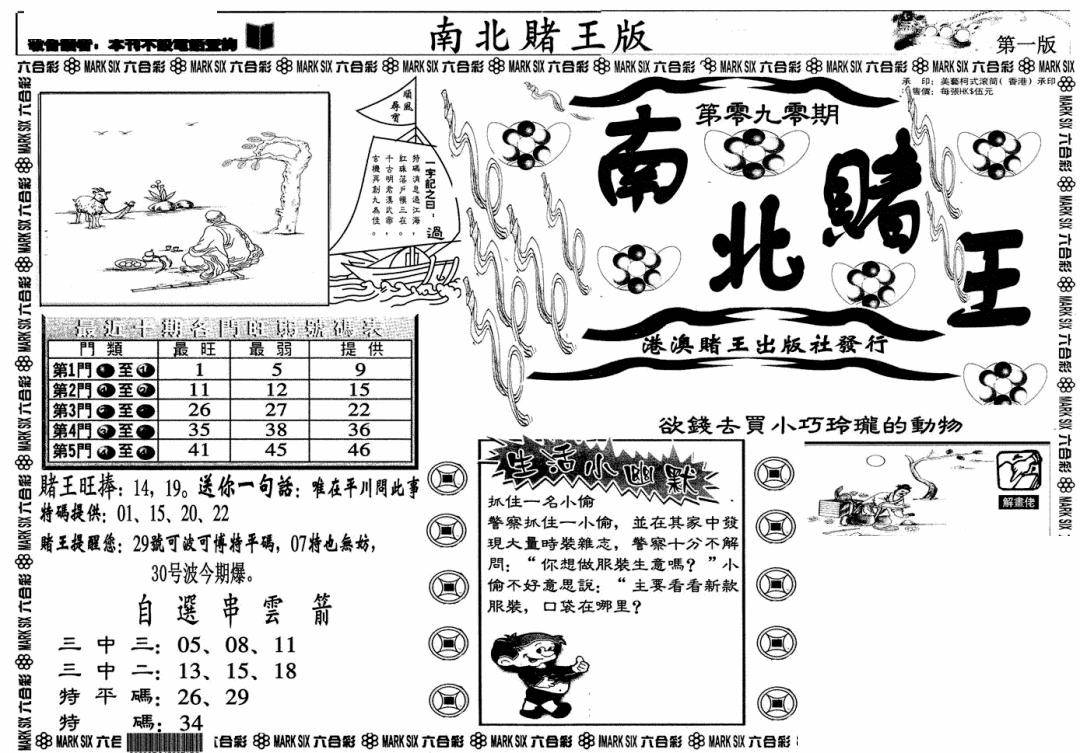 敬告讀者：本刊不設電話查詢
南北賭王版
第一版
六合彩 MARK SIX 六合彩 MARK SIX 六合彩 MARK SIX 六合彩 MARK SIX 六合彩 MARK SIX 六合彩 MARK SIX 六合彩 MARK SIX 六合彩 MARK SIX 六合彩 MARK SIX 六合彩 MARK SIX
承 印：美藝柯式滚简(香港)承印
售價：每張HK$伍元
順風
尋寶
一字記之曰：過
特碼消息過江海，
紅珠落戶樓三在。
千古明君漢武帝，
玄機再創九為佳。
第零九零期
南北賭王
港澳賭王出版社發行
最近十期各門旺弱號碼表
門類 最旺 最弱 提供
第1門 至 1 5 9
第2門 至 11 12 15
第3門 至 26 27 22
第4門 至 35 38 36
第5門 至 41 45 46
賭王旺捧：14，19。送你一句話：唯在平川問此事
特碼提供：01、15、20、22
賭王提醒您：29號可波可博特平碼，07特也無妨，
30号波今期爆。
自選串雲箭
三中三：05、08、11
三中二：13、15、18
特平碼：26、29
特碼：34
欲錢去買小巧玲瓏的動物
生活小幽默
抓住一名小偷
警察抓住一小偷，並在其家中發
現大量時裝雜志，警察十分不解
問：“你想做服裝生意嗎？”小
偷不好意思說：“主要看看新款
服裝，口袋在哪里？
解畫佬
MARK SIX 六合彩 MARK SIX 六合彩 MARK SIX 六合彩 MARK SIX 六合彩 MARK SIX 六合彩 MARK SIX 六合彩